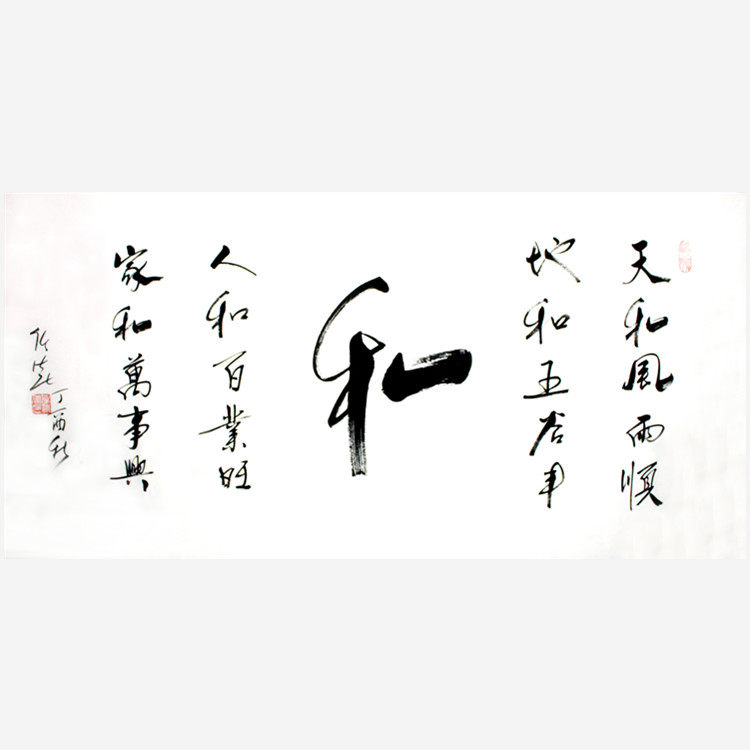 天和風雨順
地和五谷丰
和
人和百業旺
家和萬事興
丁酉秋